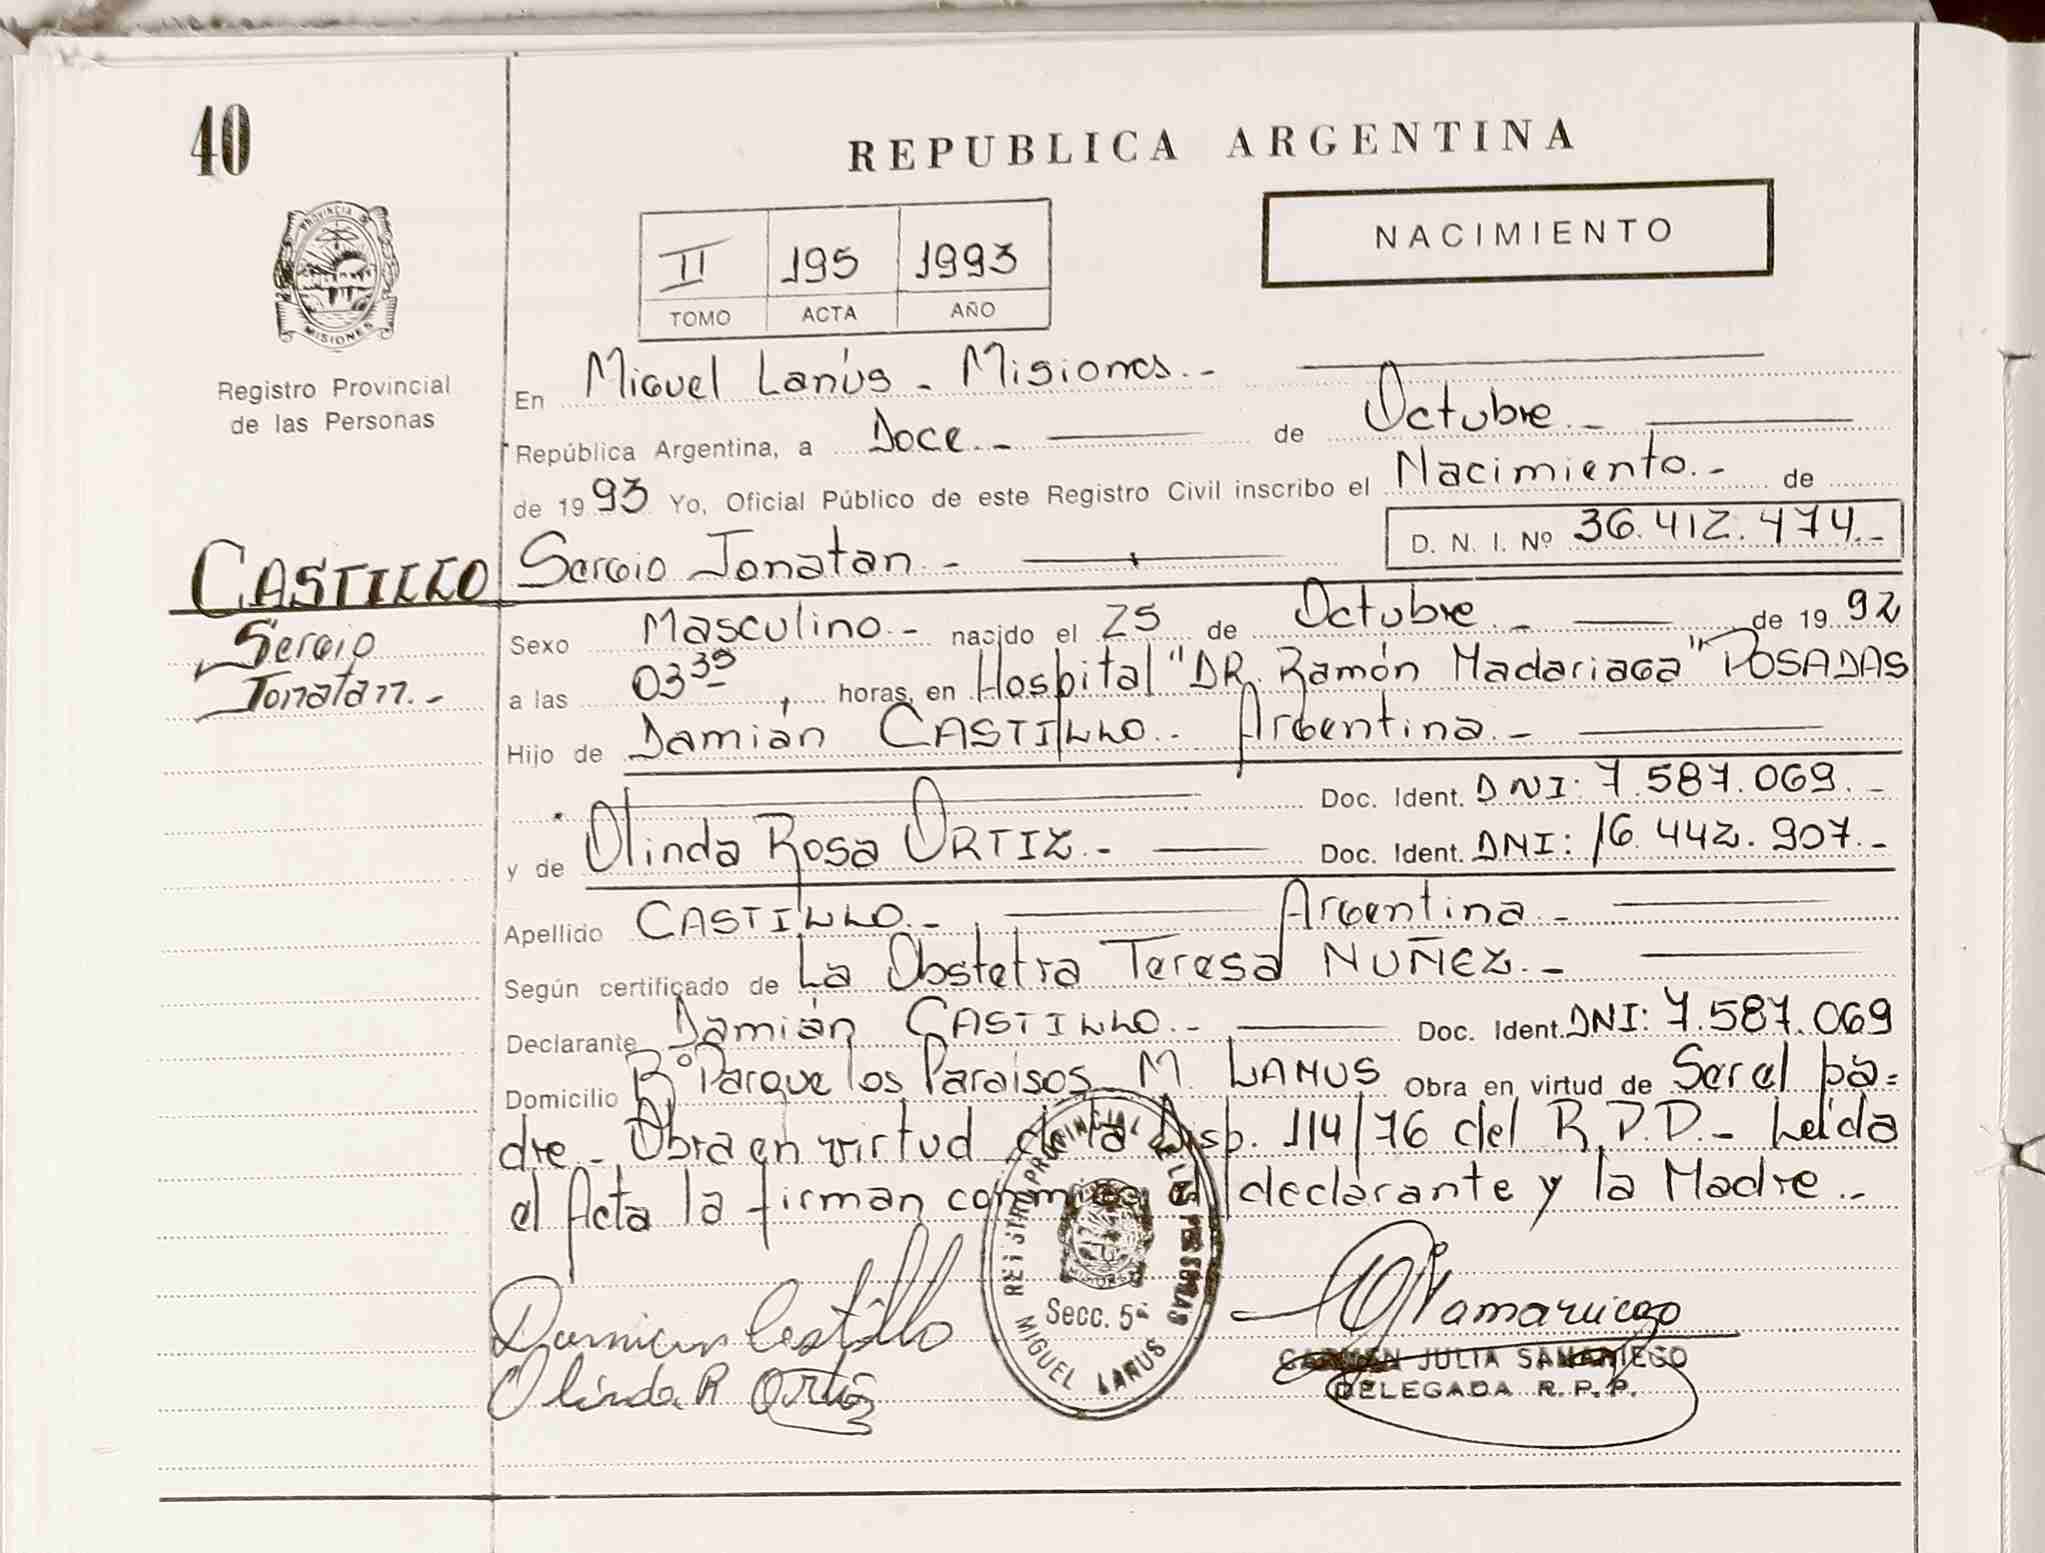 40
REPUBLICA ARGENTINA
PROVINCIA DE
MISIONES
NACIMIENTO
II 195 1993
TOMO ACTA AÑO
Registro Provincial
de las Personas
En Miguel Lanús - Misiones.-
República Argentina, a Doce.- de Octubre.-
de 1993 Yo, Oficial Público de este Registro Civil inscribo el Nacimiento.- de
D. N. I. Nº 36.412.474.-
CASTILLO Sergio Jonatan.-
Sergio
Jonatan.-
Sexo Masculino.- nacido el 25 de Octubre.- de 1992
a las 03 35, horas, en Hospital "DR. Ramón Madariaga" POSADAS
Hijo de Damián CASTILLO.- Argentina.-
Doc. Ident. DNI: 7.587.069.-
y de Olinda Rosa ORTIZ.- Doc. Ident. DNI: 16.442.907.-
Apellido CASTILLO.- Argentina.-
Según certificado de La Obstetra Teresa NUÑEZ.-
Declarante Damián CASTILLO.- Doc. Ident. DNI: 7.587.069
Domicilio Bº Parque los Paraisos M. LANUS Obra en virtud de Ser el pa=
dre.- Obra en virtud de la Disp. 114/76 del R.P.P.- Leída
el Acta la firman conmigo el declarante y la Madre.-
Damian Castillo
Olinda R Ortiz
REGISTRO PROVINCIAL DE LAS PERSONAS
MISIONES
Secc. 5ª
MIGUEL LANUS
CARMEN JULIA SAMARIEGO
DELEGADA R.P.P.